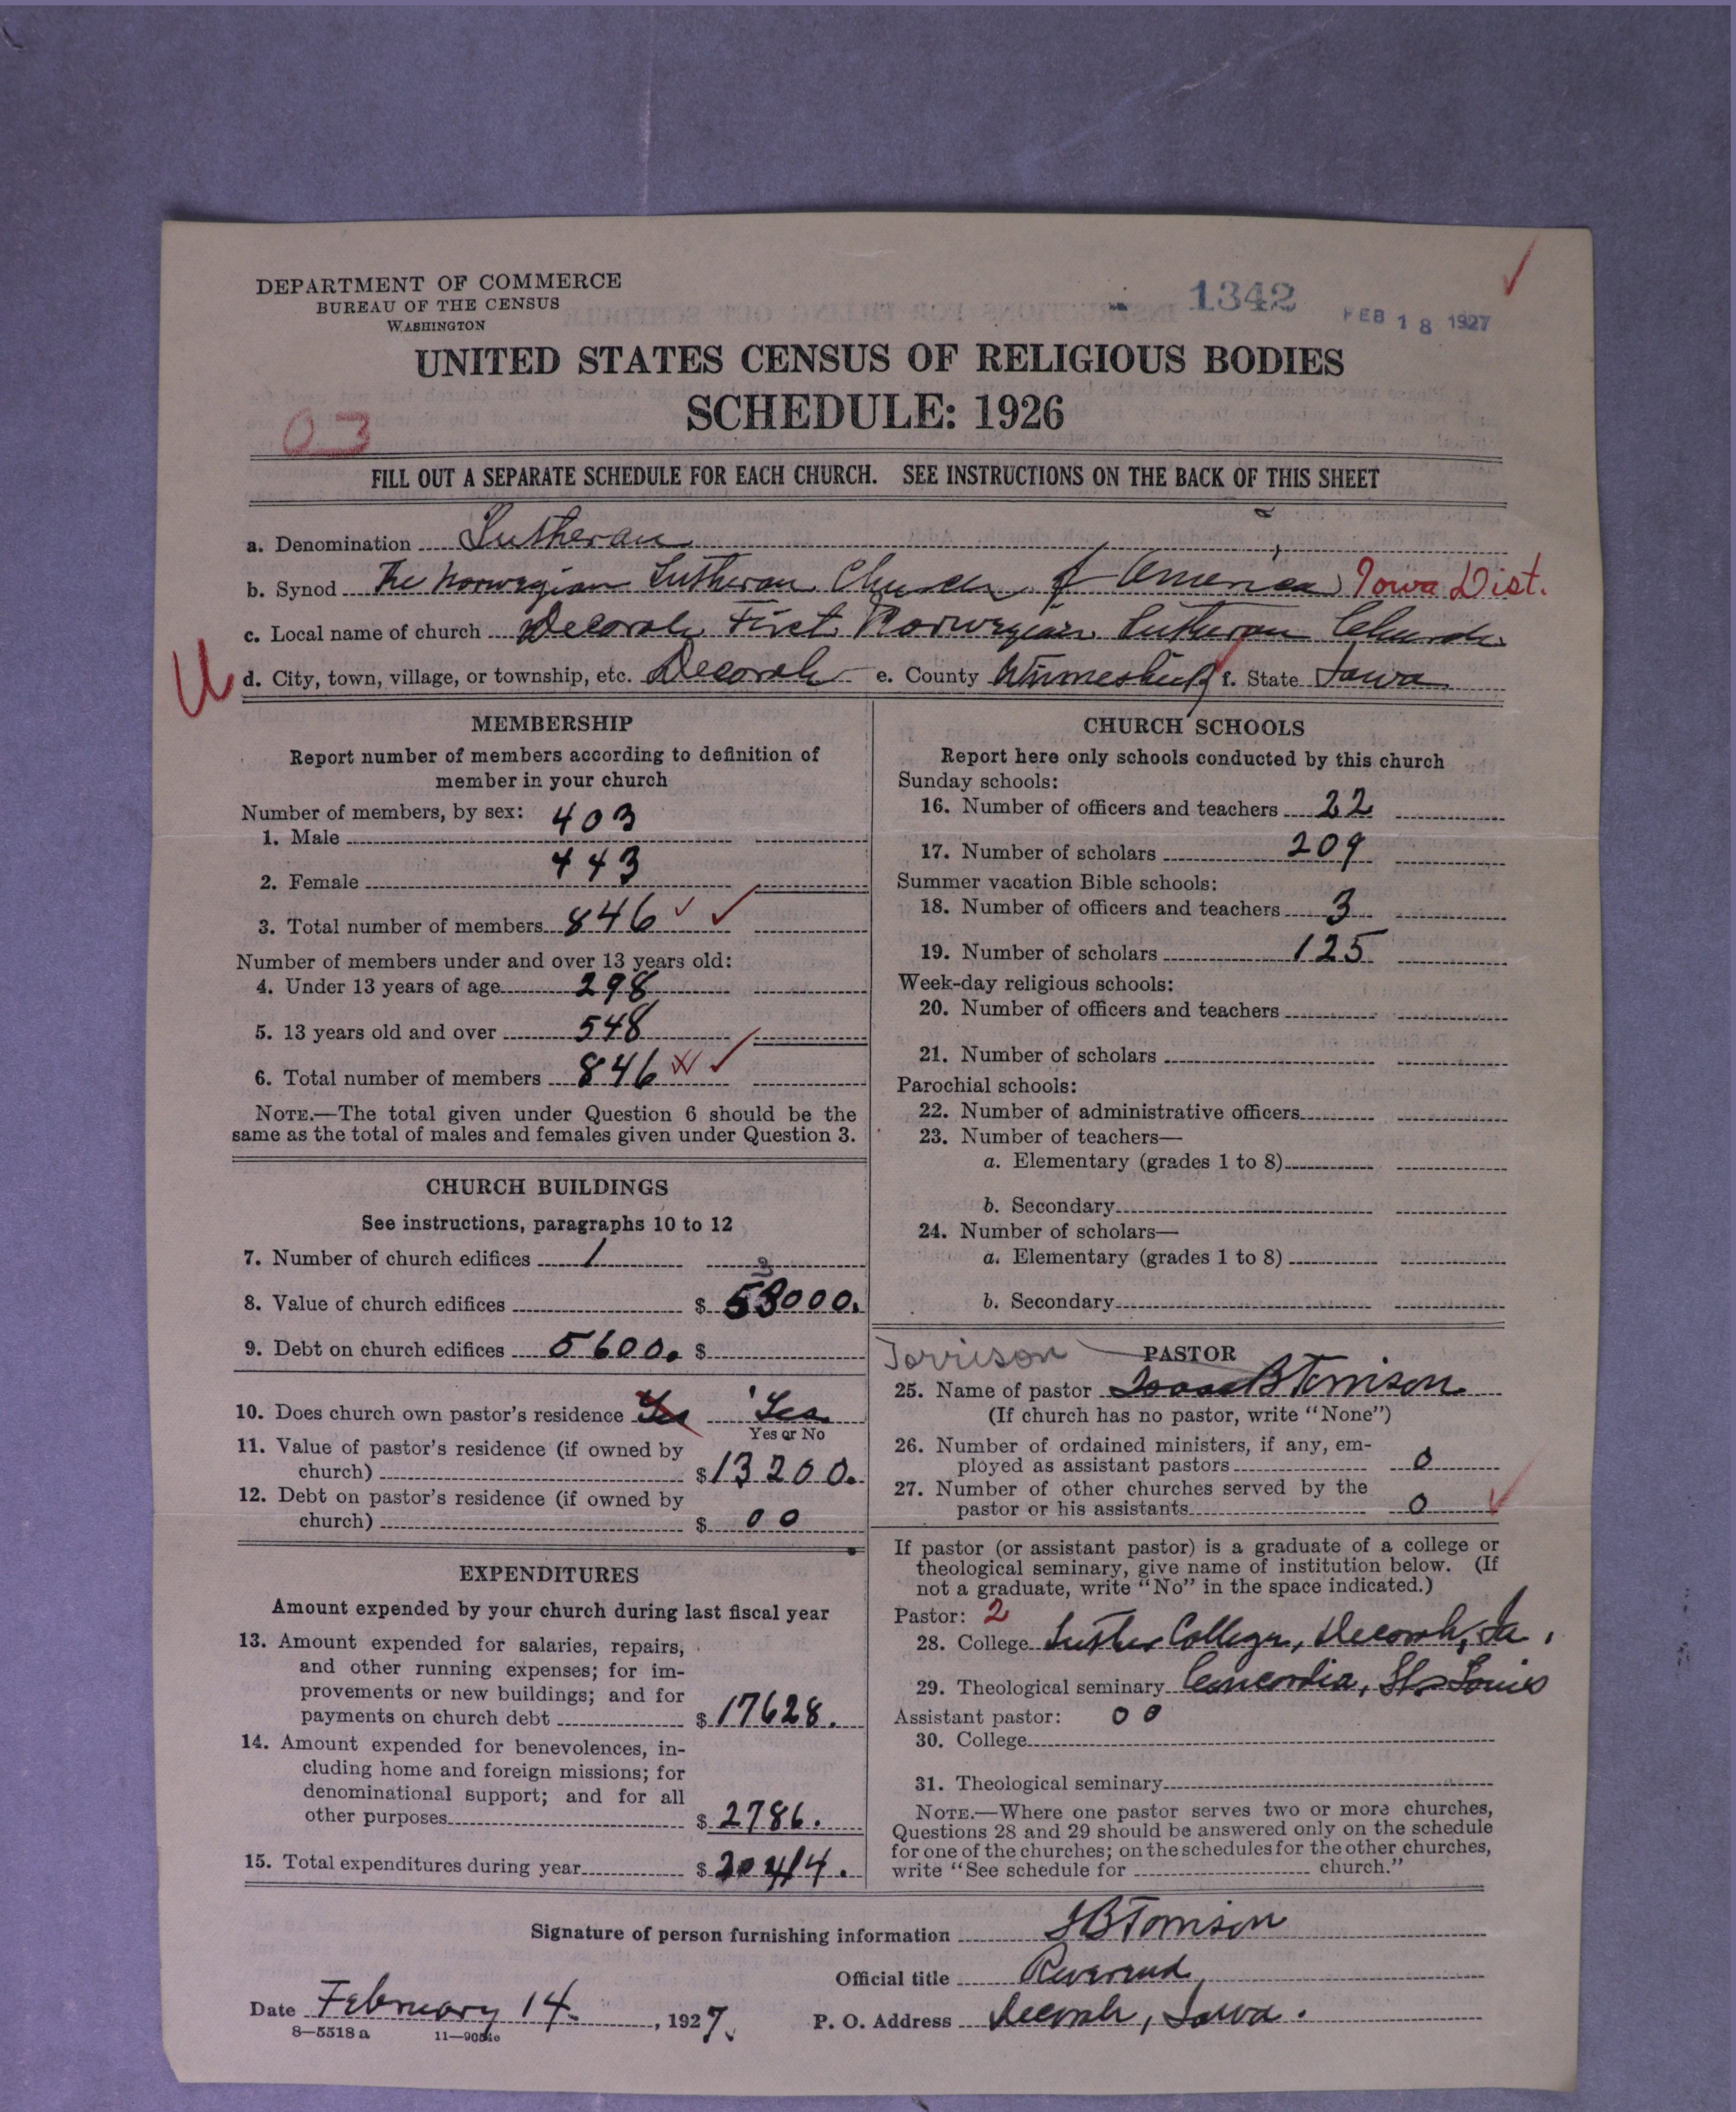 DEPARTMENT OF COMMERCE
BUREAU OF THE CENSUS
WASHINGTON
1342
FEB 18 1927
UNITED STATES CENSUS OF RELIGIOUS BODIES
SCHEDULE: 1926
03
FILL OUT A SEPARATE SCHEDULE FOR EACH CHURCH. SEE INSTRUCTIONS ON THE BACK OF THIS SHEET
a. Denomination Lutheran
b. Synod The Norwegian Lutheran Church of America Iowa Dist.
c. Local name of church Decorah First Norwegian Lutheran Church
U d. City, town, village, or township, etc. Decorah e. County Winneshiek f. State Iowa
MEMBERSHIP
Report number of members according to definition of
member in your church
Number of members, by sex:
1. Male 403
2. Female 443
3. Total number of members 846
Number of members under and over 13 years old:
4. Under 13 years of age 298
5. 13 years old and over 548
6. Total number of members 846
NOTE.—The total given under Question 6 should be the
same as the total of males and females given under Question 3.
CHURCH BUILDINGS
See instructions, paragraphs 10 to 12
7. Number of church edifices 1
3
8. Value of church edifices $ 53000.
9. Debt on church edifices 5600. $
10. Does church own pastor's residence Yes Yes
Yes or No
11. Value of pastor's residence (if owned by
church) $ 13200.
12. Debt on pastor's residence (if owned by
church) $ 00
EXPENDITURES
Amount expended by your church during last fiscal year
13. Amount expended for salaries, repairs,
and other running expenses; for im-
provements or new buildings; and for
payments on church debt $ 17628.
14. Amount expended for benevolences, in-
cluding home and foreign missions; for
denominational support; and for all
other purposes $ 2786.
15. Total expenditures during year $ 20414.
CHURCH SCHOOLS
Report here only schools conducted by this church
Sunday schools:
16. Number of officers and teachers 22
17. Number of scholars 209
Summer vacation Bible schools:
18. Number of officers and teachers 3
19. Number of scholars 125
Week-day religious schools:
20. Number of officers and teachers
21. Number of scholars
Parochial schools:
22. Number of administrative officers
23. Number of teachers—
a. Elementary (grades 1 to 8)
b. Secondary
24. Number of scholars—
a. Elementary (grades 1 to 8)
b. Secondary
Torrison PASTOR
25. Name of pastor Isaac B Torrison
(If church has no pastor, write "None")
26. Number of ordained ministers, if any, em-
ployed as assistant pastors 0
27. Number of other churches served by the
pastor or his assistants 0
If pastor (or assistant pastor) is a graduate of a college or
theological seminary, give name of institution below. (If
not a graduate, write "No" in the space indicated.)
Pastor: 2
28. College Luther College, Decorah, Ia.
29. Theological seminary Concordia, St. Louis
Assistant pastor: 00
30. College
31. Theological seminary
NOTE.—Where one pastor serves two or more churches,
Questions 28 and 29 should be answered only on the schedule
for one of the churches; on the schedules for the other churches,
write "See schedule for church."
Signature of person furnishing information IB Torrison
Official title Reverend
Date February 14. , 1927. P. O. Address Decorah, Iowa.
8—5518 a 11—9051e